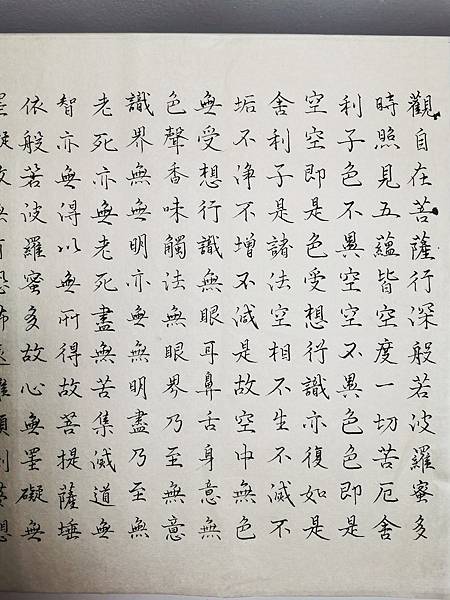 觀自在菩薩行深般若波羅蜜多
時照見五蘊皆空度一切苦厄舍
利子色不異空空不異色色即是
空空即是色受想行識亦復如是
舍利子是諸法空相不生不滅不
垢不淨不增不減是故空中無色
無受想行識無眼耳鼻舌身意無
色聲香味觸法無眼界乃至無意
識界無無明亦無無明盡乃至無
老死亦無老死盡無苦集滅道無
智亦無得以無所得故菩提薩埵
依般若波羅蜜多故心無罣礙無
罣礙故無有恐怖遠離顛倒夢想